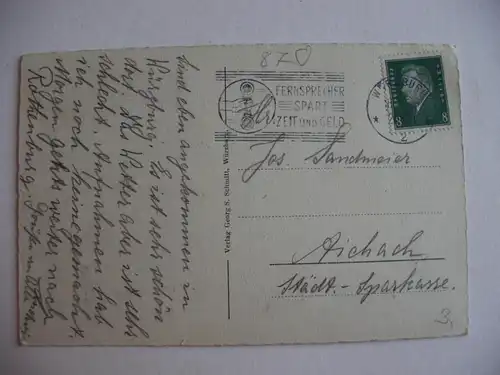 Sind eben angekommen in
Würzburg. Es ist sehr schön
dort. Das Wetter aber ist sehr
schlecht. Aufnahmen hab
ich noch keine gemacht.
Morgen gehts weiter nach
Rothenburg. Grüße
Verlag Georg S. Schmitt, Würzburg
870
FERNSPRECHER
SPART
ZEIT UND GELD
2
8 8
Jos. Sandmeier
Aichach
Städt.-Sparkasse.
3,